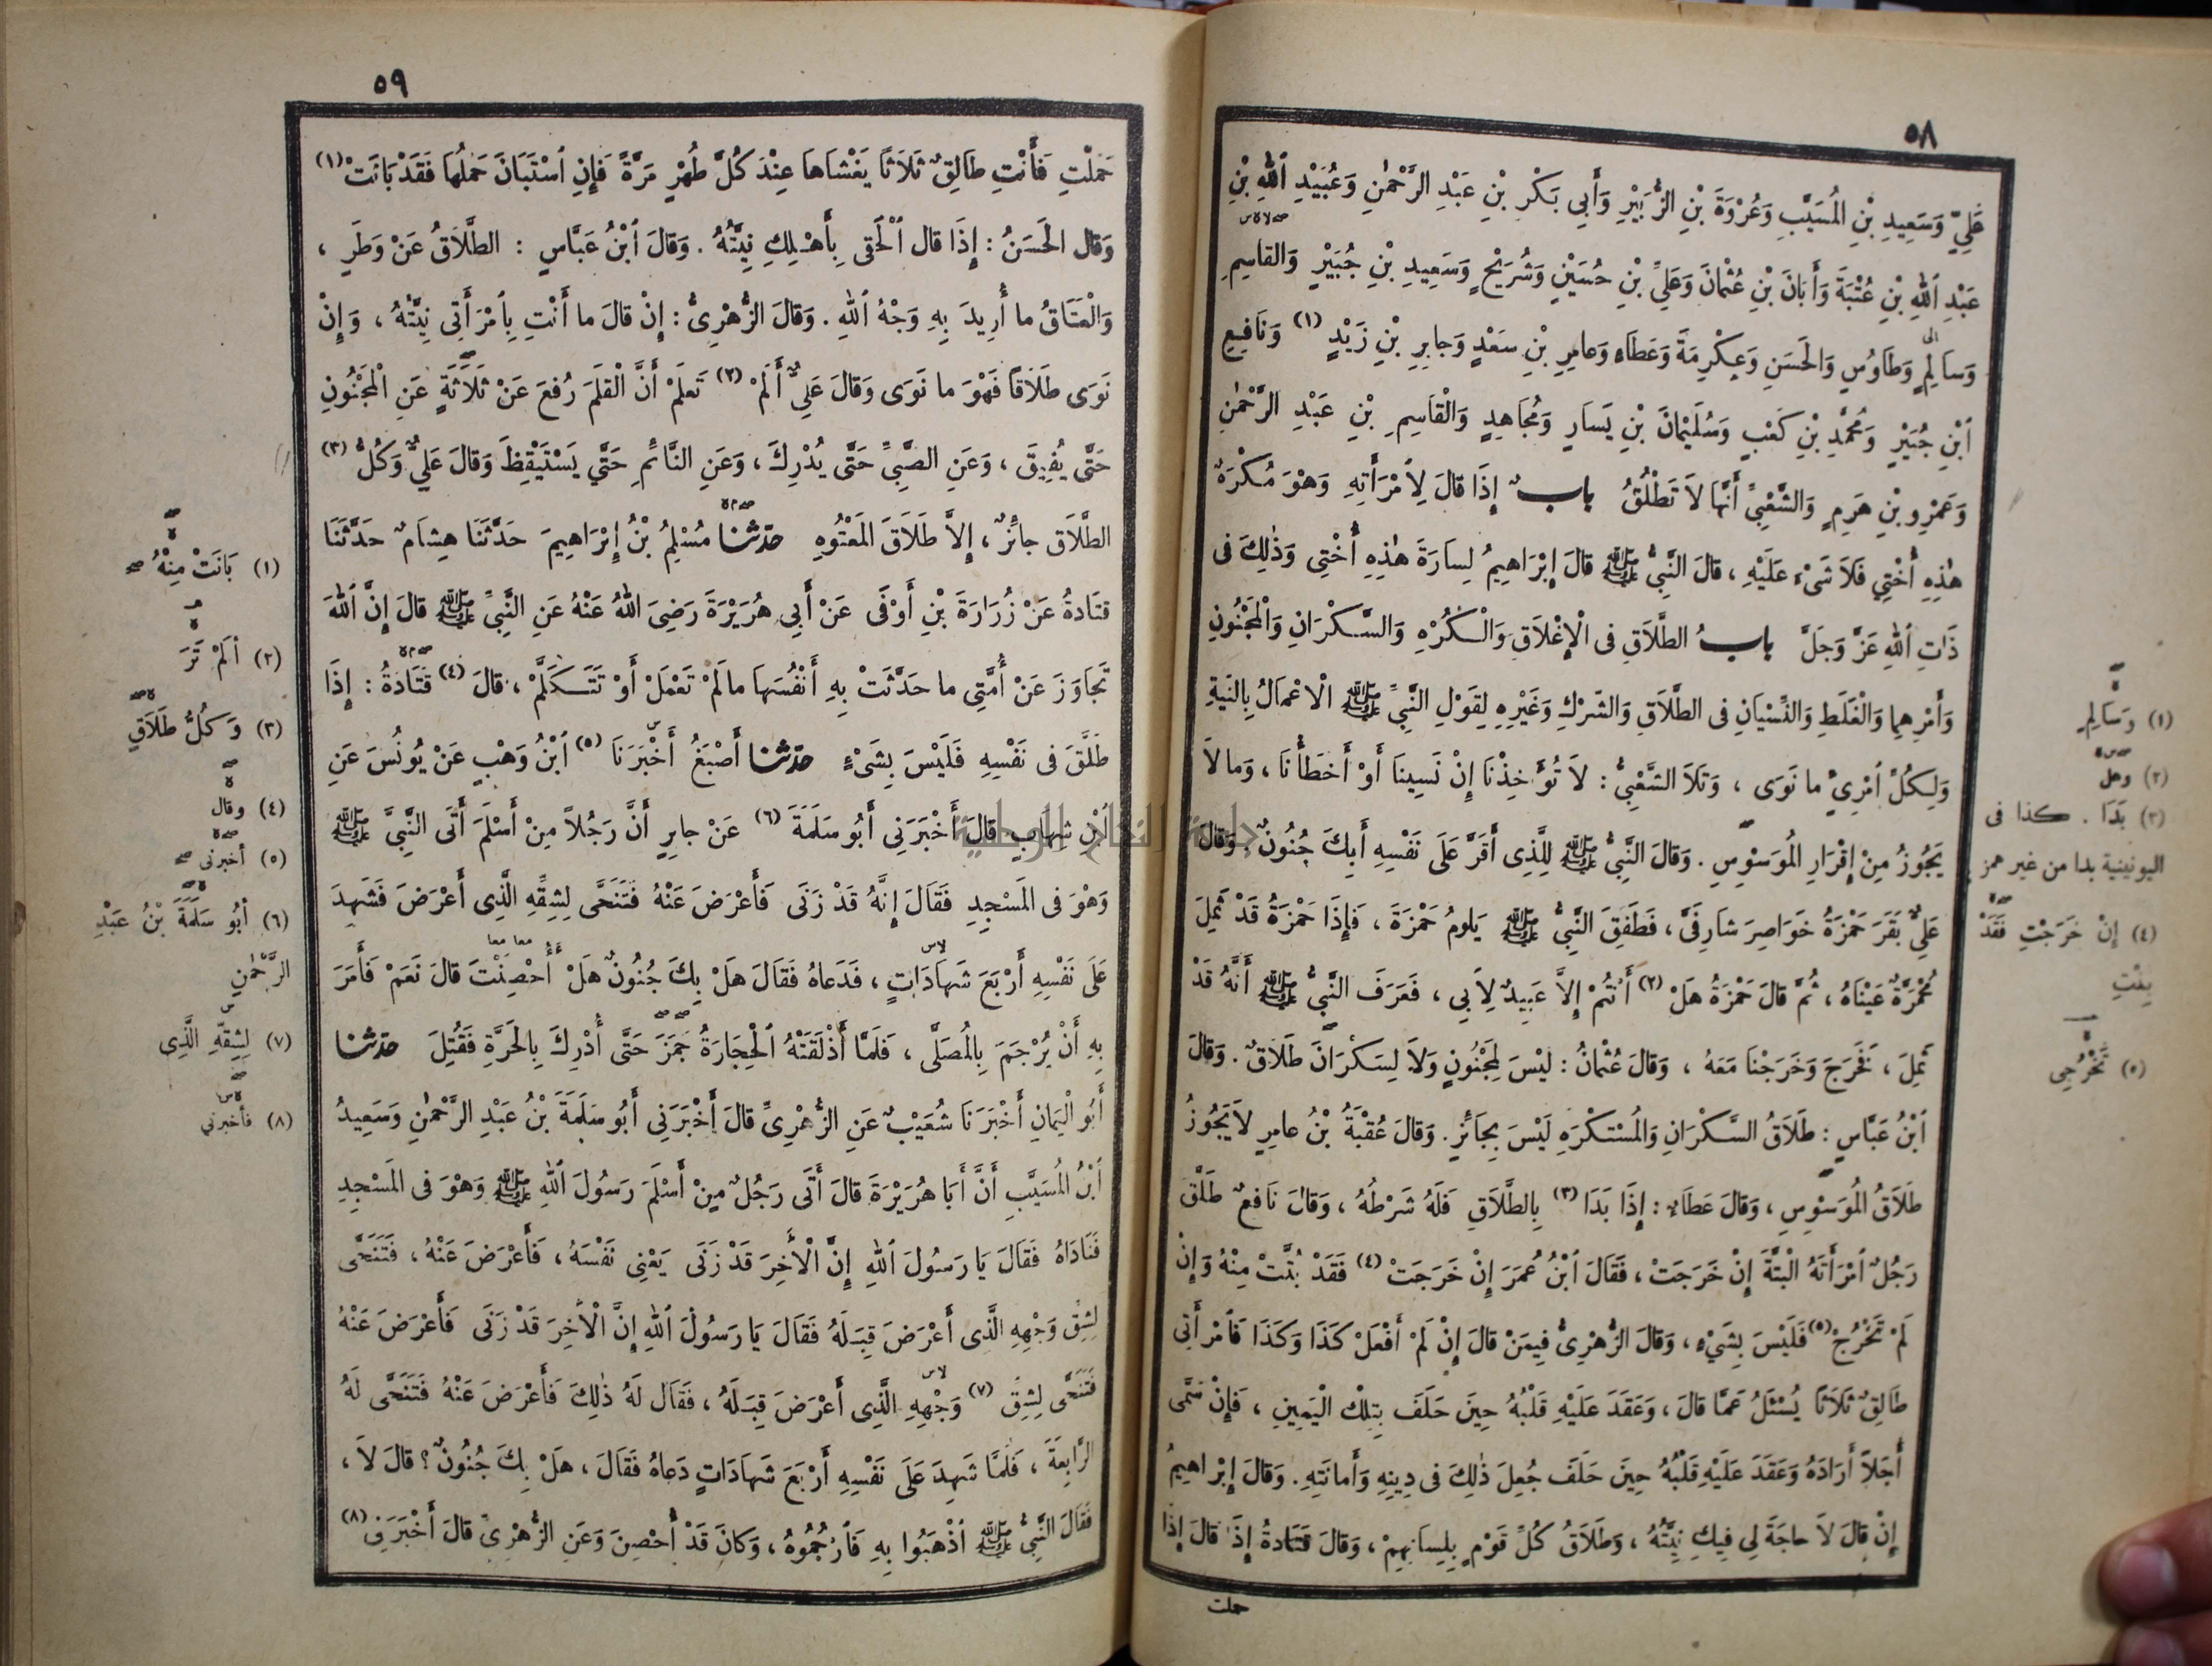 ٥٨
عَلِيٍّ وَسَعِيدِ بْنِ الْمُسَيَّبِ وَعُرْوَةَ بْنِ الزُّبَيْرِ وَأَبِي بَكْرِ بْنِ عَبْدِ الرَّحْمٰنِ وَعُبَيْدِ اللهِ بْنِ
عَبْدِ اللهِ بْنِ عُتْبَةَ وَأَبَانَ بْنِ عُثْمَانَ وَعَلِيِّ بْنِ حُسَيْنٍ وَشُرَيْحٍ وَسَعِيدِ بْنِ جُبَيْرٍ وَالقَاسِمِ
وَسَالِمٍ وَطَاوُسٍ وَالحَسَنِ وَعِكْرِمَةَ وَعَطَاءٍ وَعامِرِ بْنِ سَعْدٍ وَجابِرِ بْنِ زَيْدٍ (١) وَنَافِعِ
ابْنِ جُبَيْرٍ وَمُحَمَّدِ بْنِ كَعْبٍ وَسُلَيْمانَ بْنِ يَسَارٍ وَمُجَاهِدٍ وَالْقَاسِمِ بْنِ عَبْدِ الرَّحْمٰنِ
وَعَمْرِو بْنِ هَرِمٍ وَالشَّعْبِيِّ أَنَّهَا لاَ تَطْلُقُ باب إِذَا قالَ لِأَمْرَأَتِهِ وَهْوَ مُكْرَهٌ
هٰذِهِ أُخْتِي فَلاَ شَيْءَ عَلَيْهِ ، قالَ النَّبِيُّ ﷺ قالَ إِبْرَاهِيمُ لِسَارَةَ هٰذِهِ أُخْتِي وَذٰلِكَ فى
ذَاتِ اللهِ عَزَّ وَجَلَّ باب الطَّلاَقِ فى الْإِغْلاَقِ وَالْكُرْهِ وَالسَّكْرَانِ وَالْمَجْنُونِ
وَأَمْرِهِما وَالْغَلَطِ وَالنِّسْيَانِ فى الطَّلاَقِ وَالشِّرْكِ وَغَيْرِهِ لِقَوْلِ النَّبِيِّ ﷺ الْاعْمَالُ بِالنِّيَةِ
وَلِكُلِّ امْرِئٍ ما نَوَى ، وَتَلاَ الشَّعْبِيُّ : لاَ تُؤَاخِذْنَا إِنْ نَسِينَا أَوْ أَخطَأْنَا ، وَما لاَ
يَجُوزُ مِنْ إِقْرَارِ المُوَسْوِسِ . وَقالَ النَّبِيُّ ﷺ لِلَّذِى أَقَرَّ عَلَى نَفْسِهِ أَبِكَ جُنُونٌ . وَقالَ
عَلِيٌّ بَقَرَ حَمْزَةُ خَوَاصِرَ شَارِفَىَّ ، فَطَفِقَ النَّبِيُّ ﷺ يَلومُ حَمْزَةَ ، فَإِذَا حَمْزَةُ قَدْ ثَمِلَ
مُحْمَرَّةٌ عَيْنَاهُ ، ثُمَّ قالَ حَمْزَةُ هَلْ (٢) أَنْتُمْ إِلاَّ عَبِيدٌ لِأَبِى ، فَعَرَفَ النَّبِيُّ ﷺ أَنَّهُ قَدْ
ثَمِلَ ، فَخَرَجَ وَخَرَجْنَا مَعَهُ ، وَقالَ عُثْمانُ : لَيْسَ لِمَجْنُونٍ وَلاَ لِسَكْرَانَ طَلاَقٌ . وَقالَ
ابْنُ عَبَّاسٍ : طَلاَقُ السَّكْرَانِ وَالمُسْتَكْرَهِ لَيْسَ بِجَائزٍ . وَقالَ عُقْبَةُ بْنُ عامِرٍ لاَ يَجُوزُ
طَلاَقُ المُوَسْوِسِ ، وَقالَ عَطَاءٌ : إِذَا بَدَا (٣) بِالطَّلاَقِ فَلَهُ شَرْطُهُ ، وَقالَ نَافعٌ طَلَّقَ
رَجُلٌ امْرَأَتَهُ الْبَتَّةَ إِنْ خَرَجَتْ ، فَقَالَ ابْنُ عُمَرَ إِنْ خَرَجَتْ (٤) فَقَدْ بُتَّتْ مِنْهُ وَإِنْ
لَمْ تَخْرُجْ (٥) فَلَيْسَ بِشَيْءٍ ، وَقالَ الزُّهْرِىُّ فِيمَنْ قالَ إِنْ لَمْ أَفْعَلْ كَذَا وَكَذَا فَامْرَأَتى
طَالِقٌ ثَلاَثًا يُسْئَلُ عَمَّا قالَ ، وَعَقَدَ عَلَيْهِ قَلْبُهُ حِينَ حَلَفَ بِتِلْكَ الْيَمِينِ ، فَإِنْ سَمَّى
أَجَلاً أَرَادَهُ وَعَقَدَ عَلَيْهِ قَلْبُهُ حِينَ حَلَفَ جُعِلَ ذٰلِكَ فى دِينِهِ وَأَمانَتِهِ . وَقالَ إِبْرَاهِيمُ
إِنْ قالَ لاَ حاجَةَ لِى فِيكِ نِيَّتُهُ ، وَطَلاَقُ كُلِّ قَوْمٍ بِلِسَانِهِمْ ، وَقالَ قَتَادَةُ إِذَا قالَ إِذَا
حملت
(١) وَسَالِمٍ
(٢) وهل
(٣) بَدَا . كذا فى
اليونينية بدا من غير همز
(٤) إِنْ خَرَجْتِ فَقَدْ
بِنْتِ
(٥) تَخْرُجِى
٥٩
حَمَلْتِ فَأَنْتِ طَالِقٌ ثَلاَثًا يَغْشَاهَا عِنْدَ كُلِّ طُهْرٍ مَرَّةً فَإِنِ اسْتَبَانَ حَمْلُهَا فَقَدْ بَانَتْ (١)
وَقالَ الحَسَنُ : إِذَا قالَ الْحَقِى بِأَهْلِكِ نِيَّتُهُ . وَقالَ ابْنُ عَبَّاسٍ : الطَّلاَقُ عَنْ وَطَرٍ ،
وَالْعَتَاقُ ما أُرِيدَ بِهِ وَجْهُ اللهِ . وَقالَ الزُّهْرِىُّ : إِنْ قالَ ما أَنْتِ بِامْرَأَتِى نِيَّتُهُ ، وَإِنْ
نَوَى طَلاَقًا فَهْوَ ما نَوَى وَقالَ عَلِيٌّ أَلَمْ (٢) تَعلَمْ أَنَّ الْقَلَمَ رُفعَ عَنْ ثَلاَثَةٍ عَنِ الْمَجْنُونِ
حَتَّى يُفِيقَ ، وَعَنِ الصَّبِيِّ حَتَّى يُدْرِكَ ، وَعَنِ النَّائمِ حَتَّى يَسْتَيْقِظَ وَقالَ عَلِيٌّ وَكُلُّ (٣)
الطَّلاَقِ جائزٌ ، إِلاَّ طَلاَقَ المَعْتُوهِ حدثنا مُسْلِمُ بْنُ إِبْرَاهِيمَ حَدَّثَنَا هِشَامٌ حَدَّثَنَا
قتَادةُ عَنْ زُرَارَةَ بْنِ أَوْفَى عَنْ أَبِى هُرَيْرَةَ رَضِىَ اللهُ عَنْهُ عَنِ النَّبِيِّ ﷺ قالَ إِنَّ اللهَ
تَجَاوَزَ عَنْ أُمَّتِى ما حَدَّثَتْ بِهِ أَنْفُسَهَا ما لَمْ تَعْمَلْ أَوْ تَتَكَلَّمْ ، قالَ (٤) قَتَادَةُ : إِذَا
طَلَّقَ فى نَفْسِهِ فَلَيْسَ بِشَىْءٍ حدثنا أَصْبَغُ أَخْبَرَنَا (٥) ابْنُ وَهْبٍ عَنْ يُونُسَ عَنِ
ابْنِ شِهَابٍ قالَ أَخْبَرَنِى أَبُو سَلَمَةَ (٦) عَنْ جابِرٍ أَنَّ رَجُلاً مِنْ أَسْلَمَ أَتَى النَّبِيَّ ﷺ
وَهْوَ فى المَسْجِدِ فَقَالَ إِنَّهُ قَدْ زَنَى فَأَعْرَضَ عَنْهُ فَتَنَحَّى لِشِقِّهِ الَّذِى أَعْرَضَ فَشَهِدَ
عَلَى نَفْسِهِ أَرْبَعَ شَهَادَاتٍ ، فَدَعاهُ فَقَالَ هَلْ بِكَ جُنُونٌ هَلْ أُحْصِنْتَ قالَ نَعَمْ فَأَمَرَ
بِهِ أَنْ يُرْجَمَ بِالمُصَلَّى ، فَلَمَّا أَذْلَقَتْهُ الْحِجَارَةُ جَمَزَ حَتَّى أُدْرِكَ بِالحَرَّةِ فَقُتِلَ حدثنا
أَبُو الْيَمَانِ أَخْبَرَنَا شُعَيْبٌ عَنِ الزُّهْرِىِّ قالَ أَخْبَرَنِى أَبُو سَلَمَةَ بْنُ عَبْدِ الرَّحْمٰنِ وَسَعِيدُ
ابْنُ المُسَيَّبِ أَنَّ أَبَا هُرَيْرَةَ قالَ أَتَى رَجُلٌ مِنْ أَسْلَمَ رَسُولَ اللهِ ﷺ وَهْوَ فى المَسْجِدِ
فَنَادَاهُ فَقَالَ يَا رَسُولَ اللهِ إِنَّ الْأَخِرَ قَدْ زَنَى يَعْنِى نَفْسَهُ ، فَأَعْرَضَ عَنْهُ ، فَتَنَحَّى
لِشِقِّ وَجْهِهِ الَّذِى أَعْرَضَ قِبَلَهُ فَقَالَ يَا رَسُولَ اللهِ إِنَّ الْأَخِرَ قَدْ زَنَى فَأَعْرَضَ عَنْهُ
فَتَنَحَّى لِشِقِّ (٧) وَجْهِهِ الَّذِى أَعْرَضَ قِبَلَهُ ، فَقَالَ لَهُ ذٰلِكَ فَأَعْرَضَ عَنْهُ فَتَنَحَّى لَهُ
الرَّابِعَةَ ، فَلَمَّا شَهِدَ عَلَى نَفْسِهِ أَرْبَعَ شَهَادَاتٍ دَعاهُ فَقَالَ ، هَلْ بِكَ جُنُونٌ ؟ قالَ لاَ ،
فَقَالَ النَّبِيُّ ﷺ اذْهَبُوا بِهِ فَارْجُمُوهُ ، وَكانَ قَدْ أُحْصِنَ وَعَنِ الزُّهْرِىِّ قالَ أَخْبَرَنِى (٨)
(١) بَانَتْ مِنْهُ
(٢) أَلَمْ تَرَ
(٣) وَكُلُّ طَلاَقٍ
(٤) وقال
(٥) أخبرنى
(٦) أَبُو سَلَمَةَ بْنُ عَبْدِ
الرَّحْمٰنِ
(٧) لِشِقِّهِ الَّذِى
(٨) فأخبرني
جامعة النجاح الوطنية